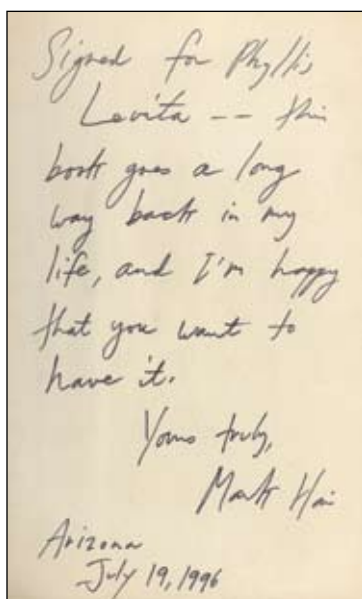 Signed for Phyllis
Levita -- this
book goes a long
way back in my
life, and I'm happy
that you want to
have it.
Yours truly,
Mark
Arizona
July 19, 1996